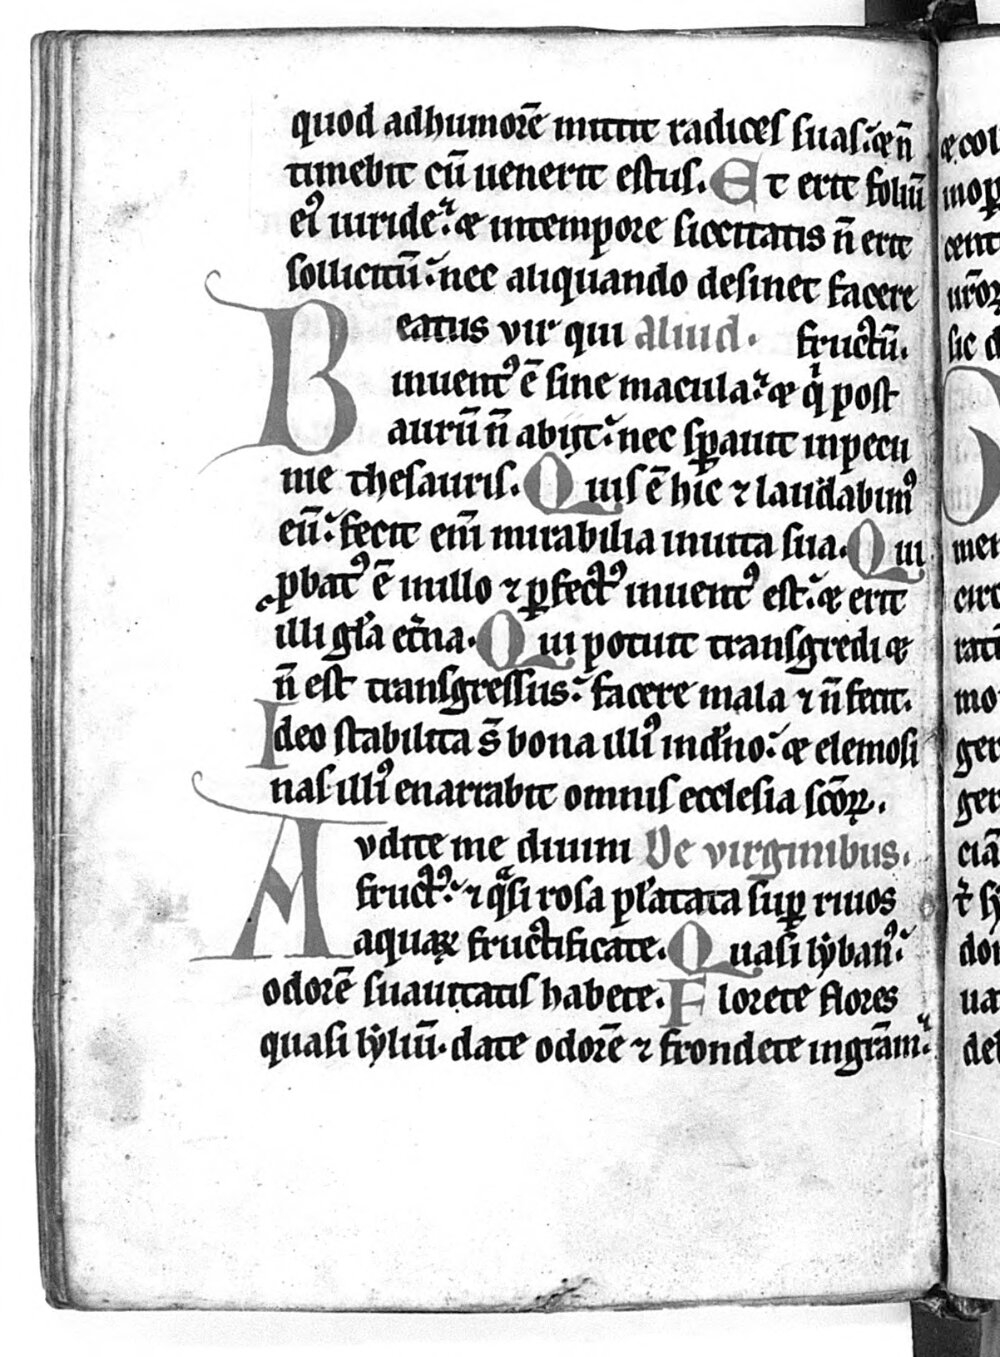 quod adhumorē mittit radices suas. & n̄
timebit cū uenerit estus. Et erit foliū
ei᷒ uiride. & intempore siccitatis n̄ erit
sollicitū. nec aliquando desinet facere
Beatus vir qui Aliud. fructū.
inuent᷒ ē sine macula. & q̇ post
aurū n̄ abijt. nec sꝑauit inpecu
nie thesauris. Quis ē hic ⁊ laudabim᷒
eū. fecit eni̅ mirabilia inuita sua. Qui
ꝓbat᷒ ē inillo ⁊ ꝑfect᷒ inuent᷒ est. & erit
illi gl̅a et̅na. Qui potuit transgredi &
n̄ est transgressus. facere mala ⁊ n̄ fecit.
Ideo stabilita s̄ bona illi᷒ indn̅o. & elemosi
nas illi᷒ enarrabit omnis ecclesia scōꝝ.
Avdite me diuini De virginibus.
fruct᷒. ⁊ qͣsi rosa pl̅atata sup̄ riuos
aquaꝝ fructificate. Quasi lẏban᷒.
odorē suauitatis habete. Florete flores
quasi lẏliū. date odorē ⁊ frondete ingr̄am.